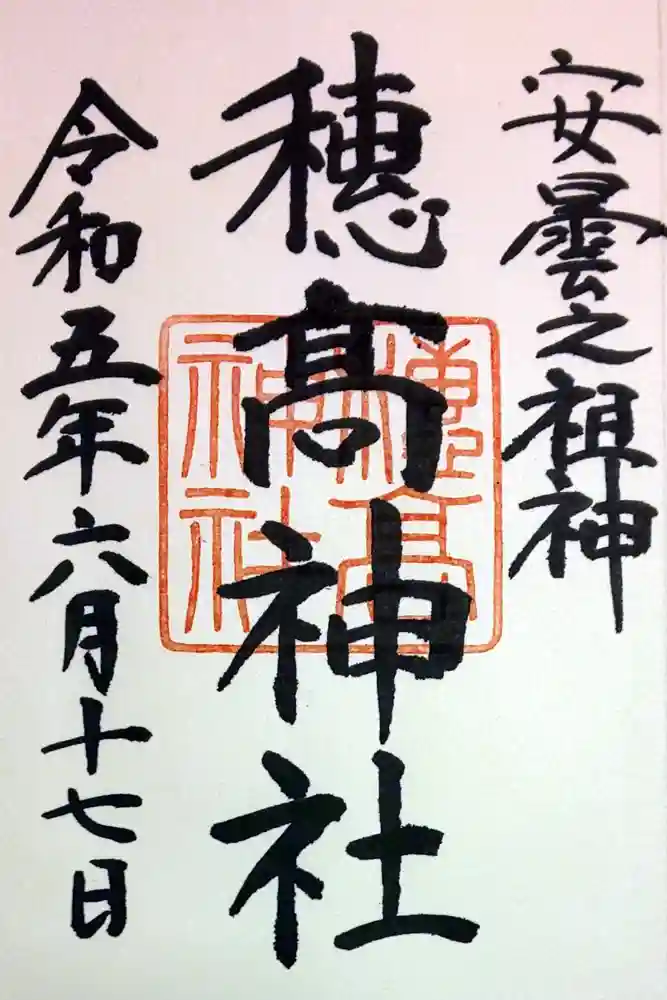 安曇之祖神
穂髙神社
令和五年六月十七日
穂髙
神社